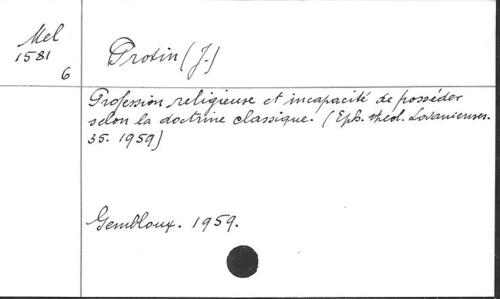 Mel
1581
6
Protin (J.)
Profession religieuse et incapacité de posséder
selon la doctrine classique. (Eph. théol. Lovanienses.
35. 1959)
Gembloux. 1959.